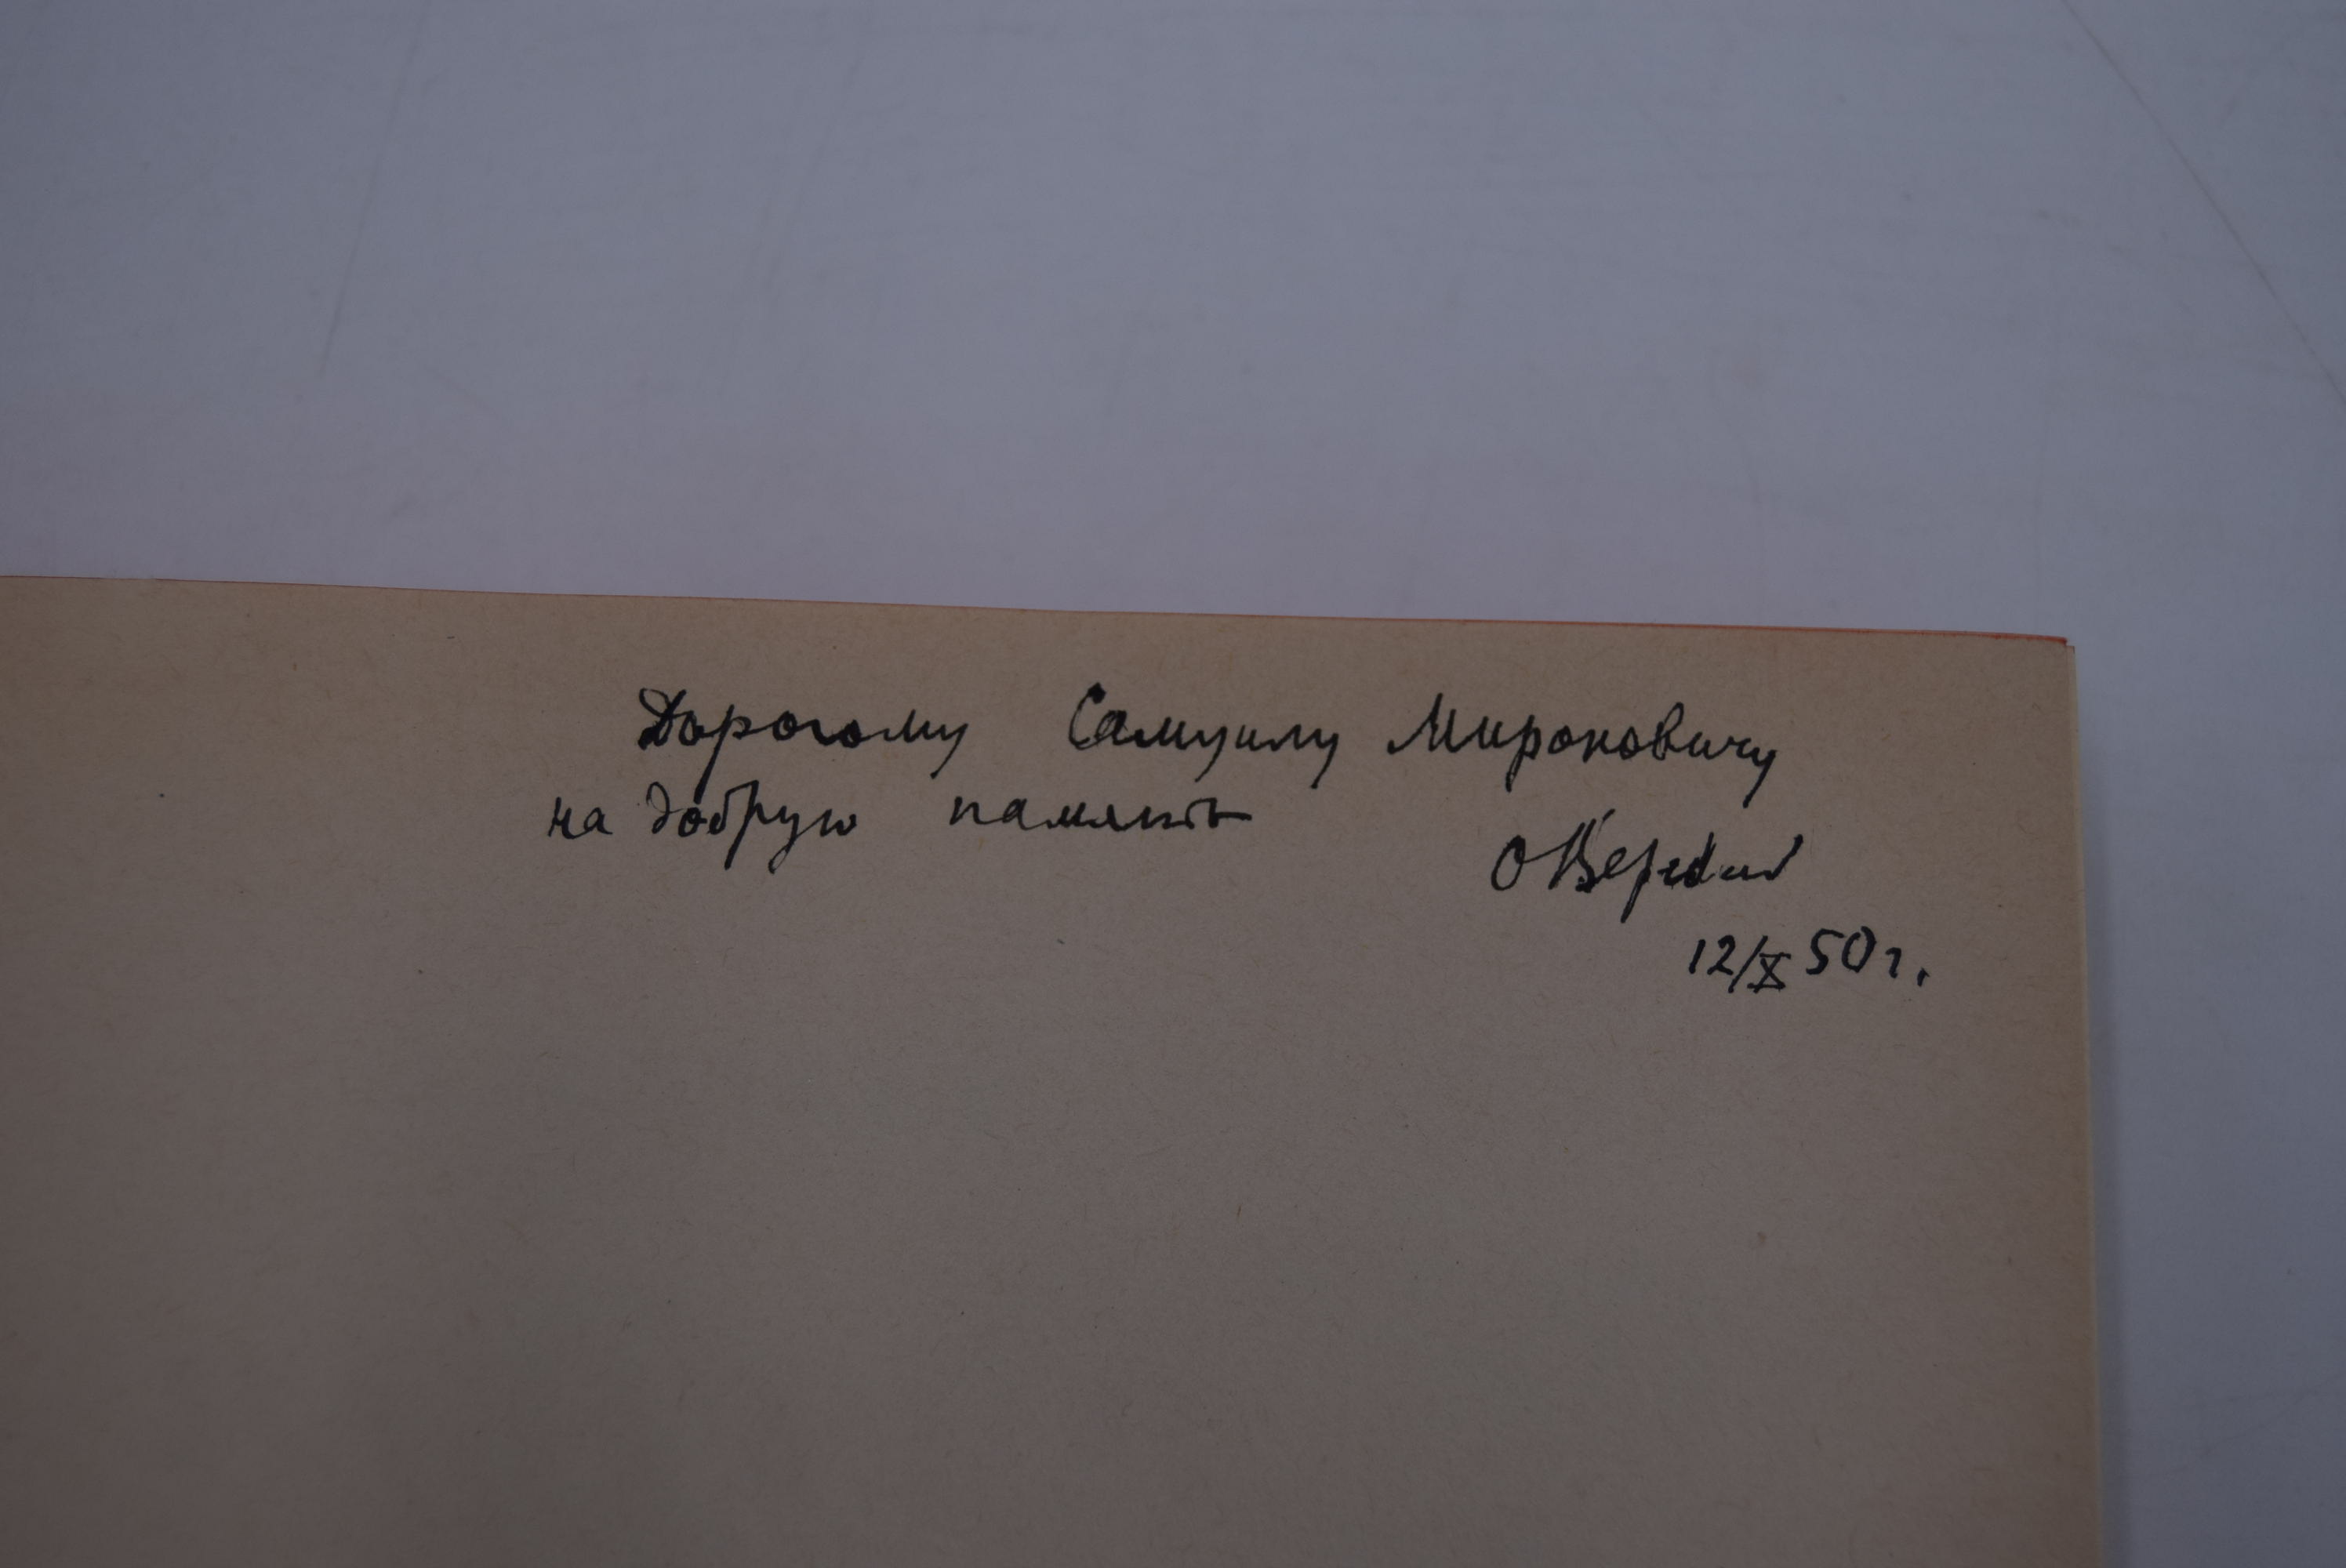 Дорогому Самуилу Мироновичу
на добрую память
ОВерейский
12/X 50 г.